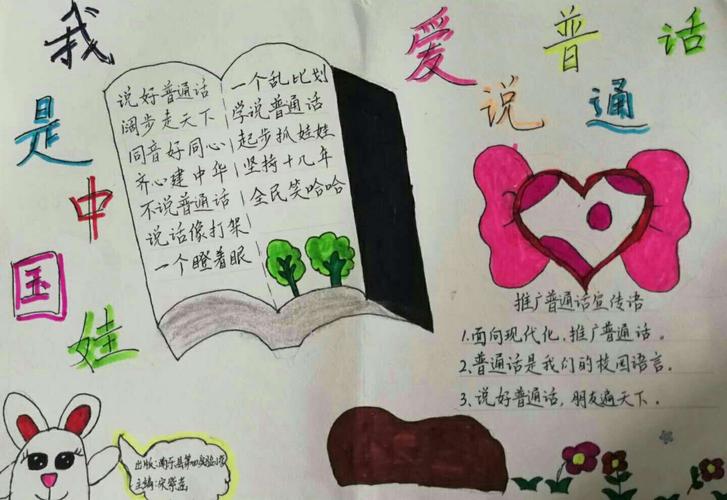 我是中国娃
爱说普通话
说好普通话
阔步走天下
同音好同心
齐心建中华
不说普通话
说话像打架
一个瞪着眼
一个乱比划
学说普通话
起步抓娃娃
坚持十几年
全民笑哈哈
推广普通话宣传语
1.面向现代化，推广普通话。
2.普通话是我们的校园语言。
3.说好普通话，朋友遍天下。
出版:南乐县第四实验小学
主编:宋紫莲